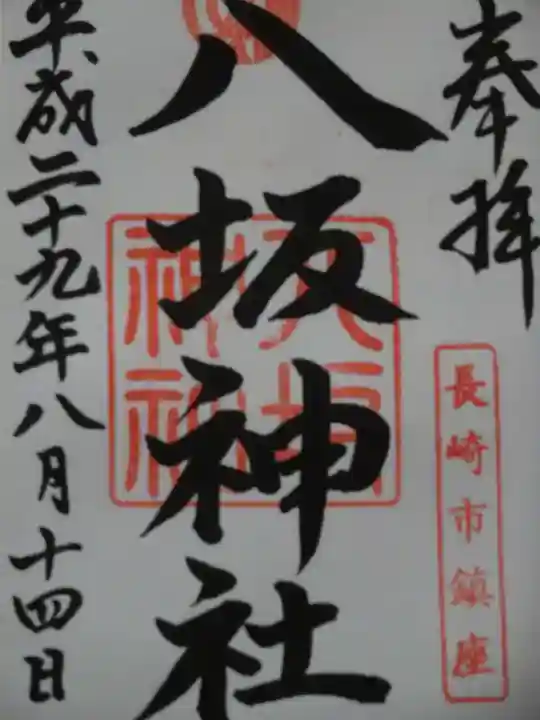 奉拝
長崎市鎮座
八坂神社
平成二十九年八月十四日